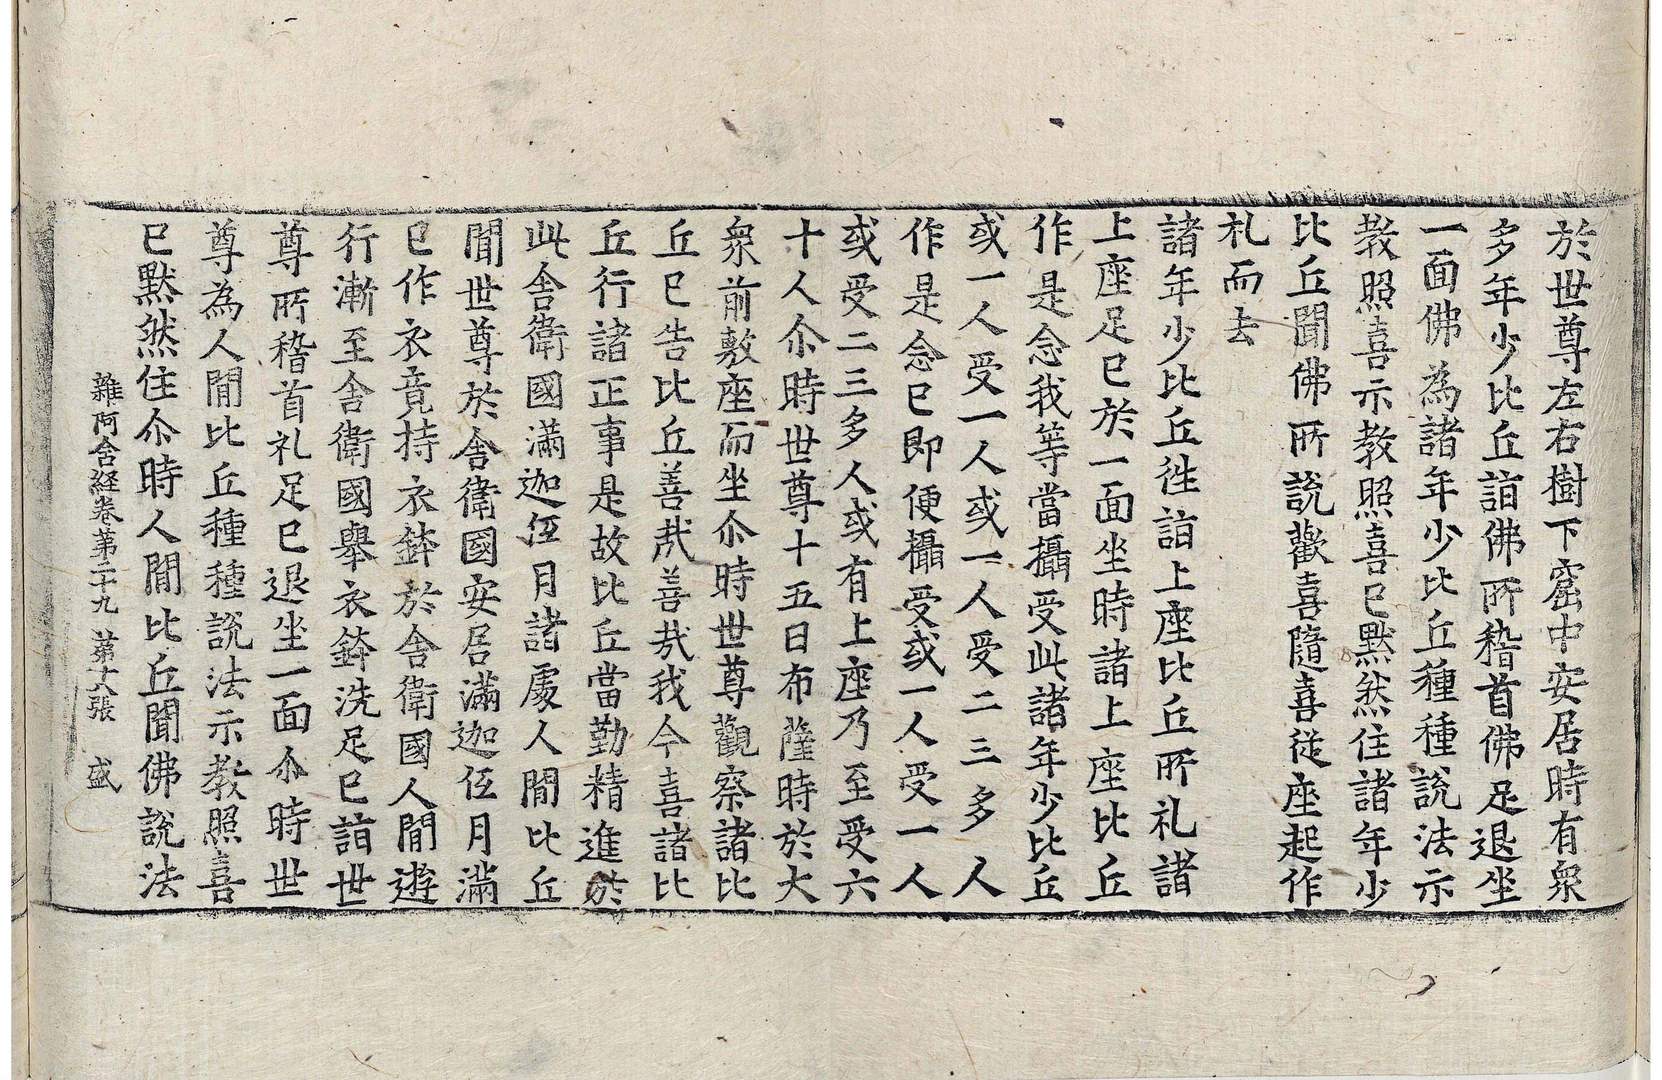 於世尊左右樹下窟中安居時有衆
多年少比丘詣佛所稽首佛足退坐
一面佛為諸年少比丘種種說法示
教照喜示教照喜已默然住諸年少
比丘聞佛所說歡喜隨喜從座起作
礼而去
諸年少比丘往詣上座比丘所礼諸
上座足已於一面坐時諸上座比丘
作是念我等當攝受此諸年少比丘
或一人受一人或一人受二三多人
作是念已即便攝受或一人受一人
或受二三多人或有上座乃至受六
十人尒時世尊十五日布薩時於大
衆前敷座而坐尒時世尊觀察諸比
丘已告比丘善哉善哉我今喜諸比
丘行諸正事是故比丘當勤精進於
此舍衛國滿迦低月諸處人間比丘
聞世尊於舍衛國安居滿迦低月滿
已作衣竟持衣鉢於舍衛國人間遊
行漸至舍衛國舉衣鉢洗足已詣世
尊所稽首礼足已退坐一面尒時世
尊為人間比丘種種說法示教照喜
已默然住尒時人間比丘聞佛說法
雜阿含経卷苐二十九 苐十八張 盛